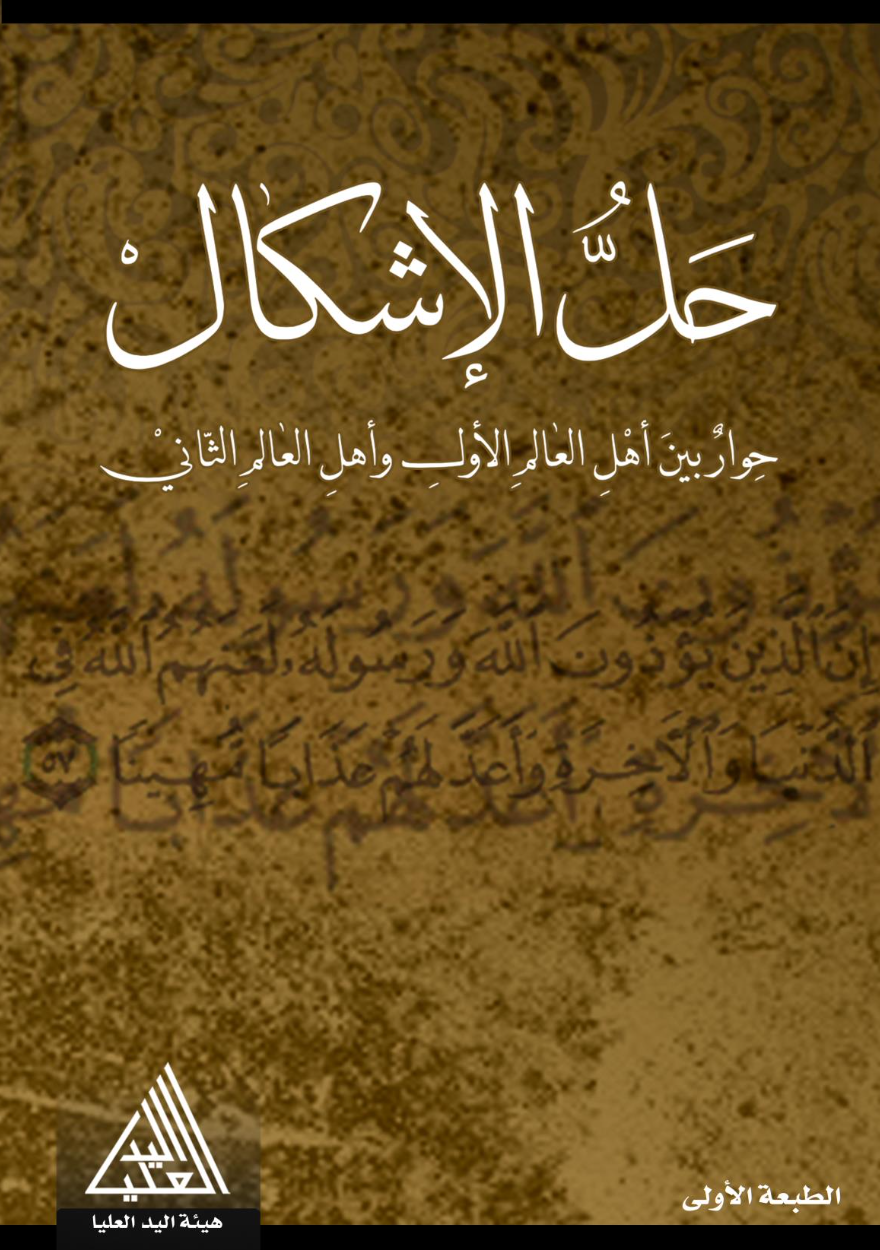 حَلُّ الإشكالْ
حِوارٌ بينَ أهْلِ العٰالمِ الأولِ وأهلِ العٰالمِ الثّانيْ
إِنَّ ٱلَّذِينَ يُؤْذُونَ ٱللَّهَ وَرَسُولَهُۥ لَعَنَهُمُ ٱللَّهُ فِى
ٱلدُّنْيَا وَٱلْأَخِرَةِ وَأَعَدَّ لَهُمْ عَذَابًا مُّهِينًا ٥٧
اليد
العليا
هيئة اليد العليا
الطبعة الأولى